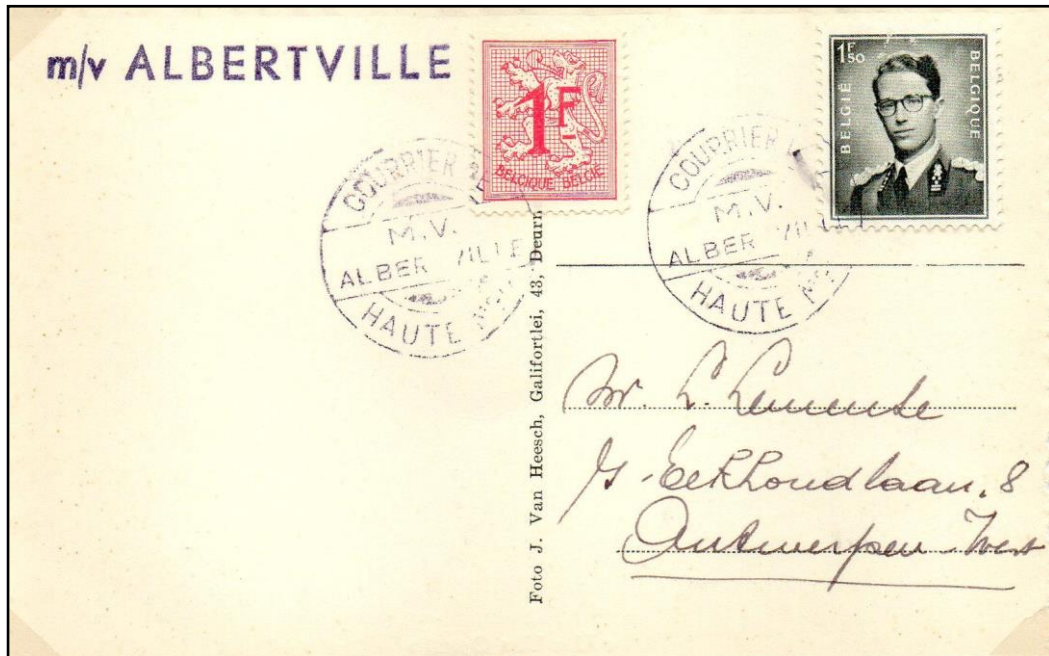 m/v ALBERTVILLE
1F
BELGIQUE BELGIE
1F50
BELGIË
BELGIQUE
COURRIER
M.V.
ALBER VILLE
HAUTE
COURRIER
M.V.
ALBER VILL
HAUTE
Foto J. Van Heesch, Galifortlei, 43, Deurn
Mr. L.
G. Eekhoudlaan, 8
Antwerpen West